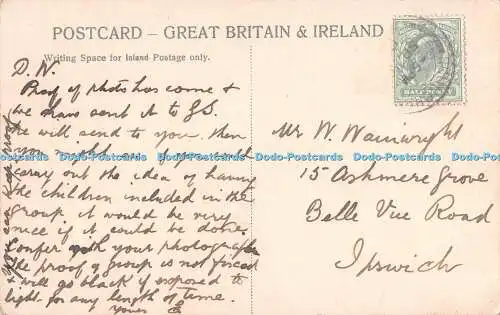 POSTCARD – GREAT BRITAIN & IRELAND
Writing Space for Inland Postage only.
HALFPENNY
D. W.
Proof of photo has come &
we have sent it to G.S.
he will send to you. then
you might see if you could
carry out the idea of having
the children included in the
group. it would be very
nice if it could be done.
Confer with your photographer
the proof of group is not fixed
& will go black if exposed to
light for any length of time.
Yours
Mr W. Wainwright
15 Ashmere Grove
Belle Vue Road
Ipswich
Dodo-Postcards Dodo-Postcards Dodo-Postcards Dodo-Postcards Dodo-Postcards